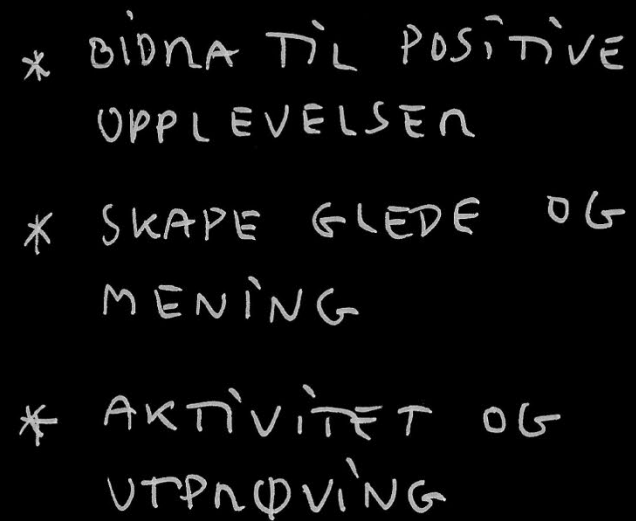 * BIDRA TIL POSITIVE
OPPLEVELSER
* SKAPE GLEDE OG
MENING
* AKTIVITET OG
UTPRØVING